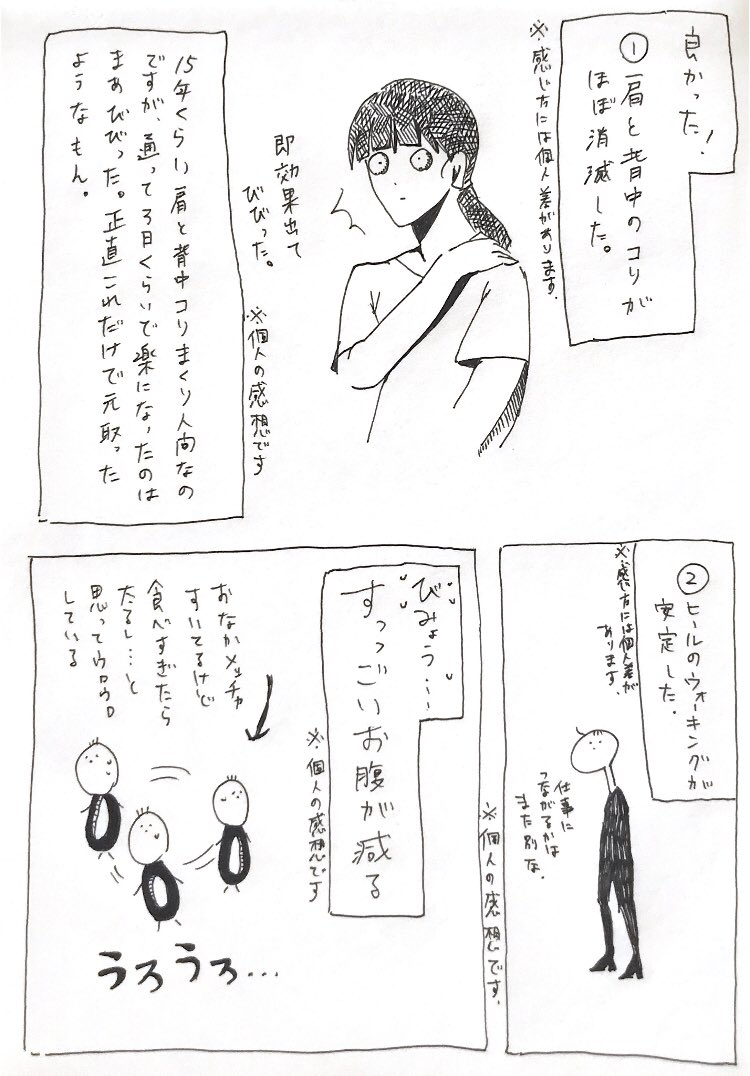 良かった!
①肩と背中のコリが
ほぼ消滅した。
※感じ方には個人差があります.
即効果出て
びびった。
※個人の感想です
15年くらい肩と背中コリまくり人間なの
ですが、通って3日くらいで楽になったのは
まぁびびった。正直これだけで元取った
ようなもん。
②ヒールのウォーキングが
安定した.
※感じ方には個人差が
あります.
仕事に
つながるかは
また別な.
※個人の感想です.
びみょう…
すっっごいお腹が減る
※個人の感想です
おなかメッチャ
すいてるけど
食べすぎたら
太るし…と
思ってウロウロ
している
うろうろ…